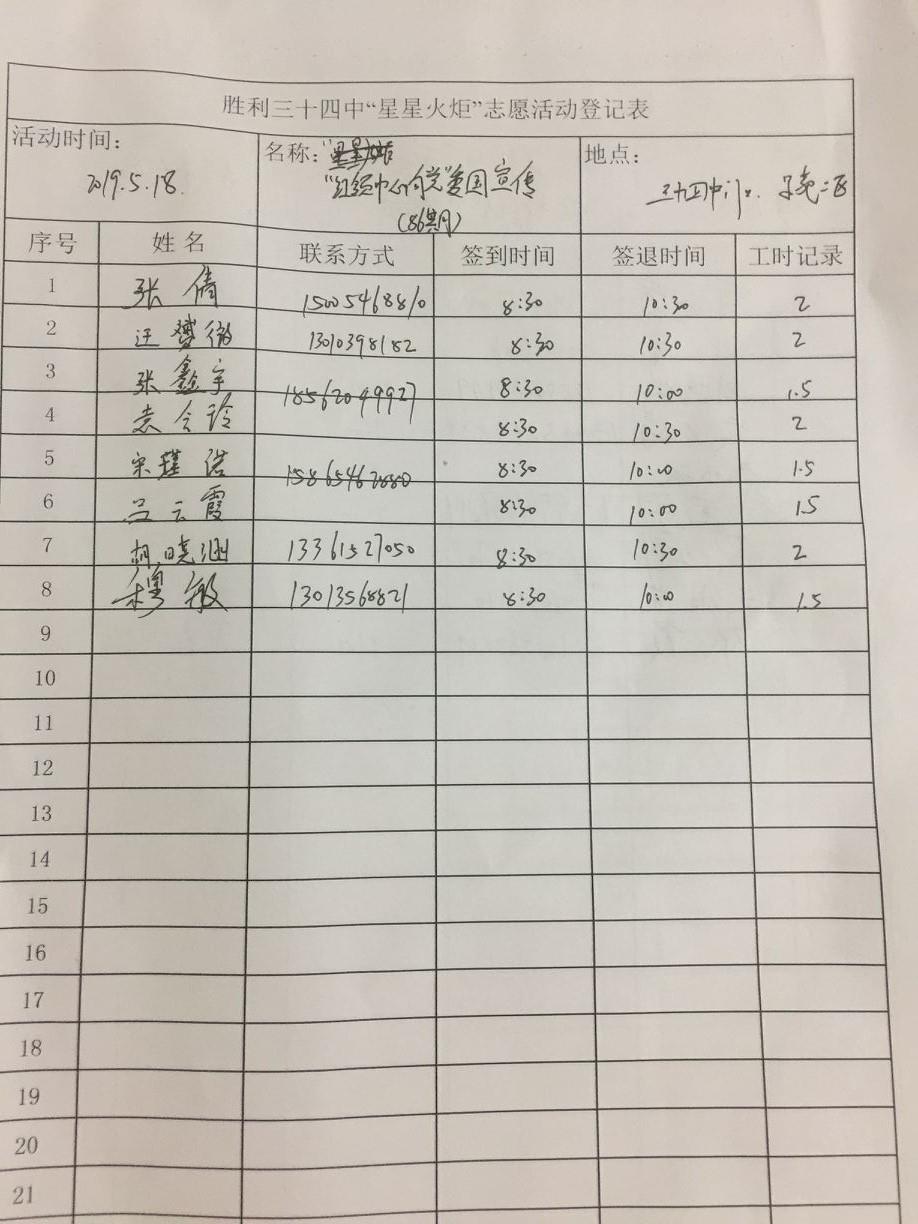 胜利三十四中“星星火炬”志愿活动登记表
活动时间： 名称： 地点：
2019.5.18.
“红领巾心向党”爱国宣传
(86期)
序号 姓名 联系方式 签到时间 签退时间 工时记录
1 张倩 15005468810 8:30 10:30 2
2 8:30 10:30 2
3 张鑫宇 18562049927 8:30 10:00 1.5
4 袁会玲 8:30 10:30 2
5 宋瑾浩 8:30 10:00 1.5
6 吕云霞 8:30 10:00 1.5
7 胡晓 13361527050 8:30 10:30 2
8 穆敏 13013568821 8:30 10:00 1.5
9
10
11
12
13
14
15
16
17
18
19
20
21